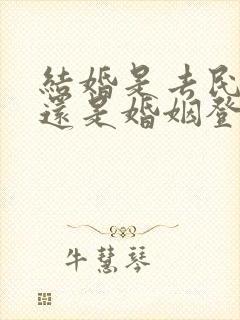 結婚是去民
還是婚姻登
牛慧琴